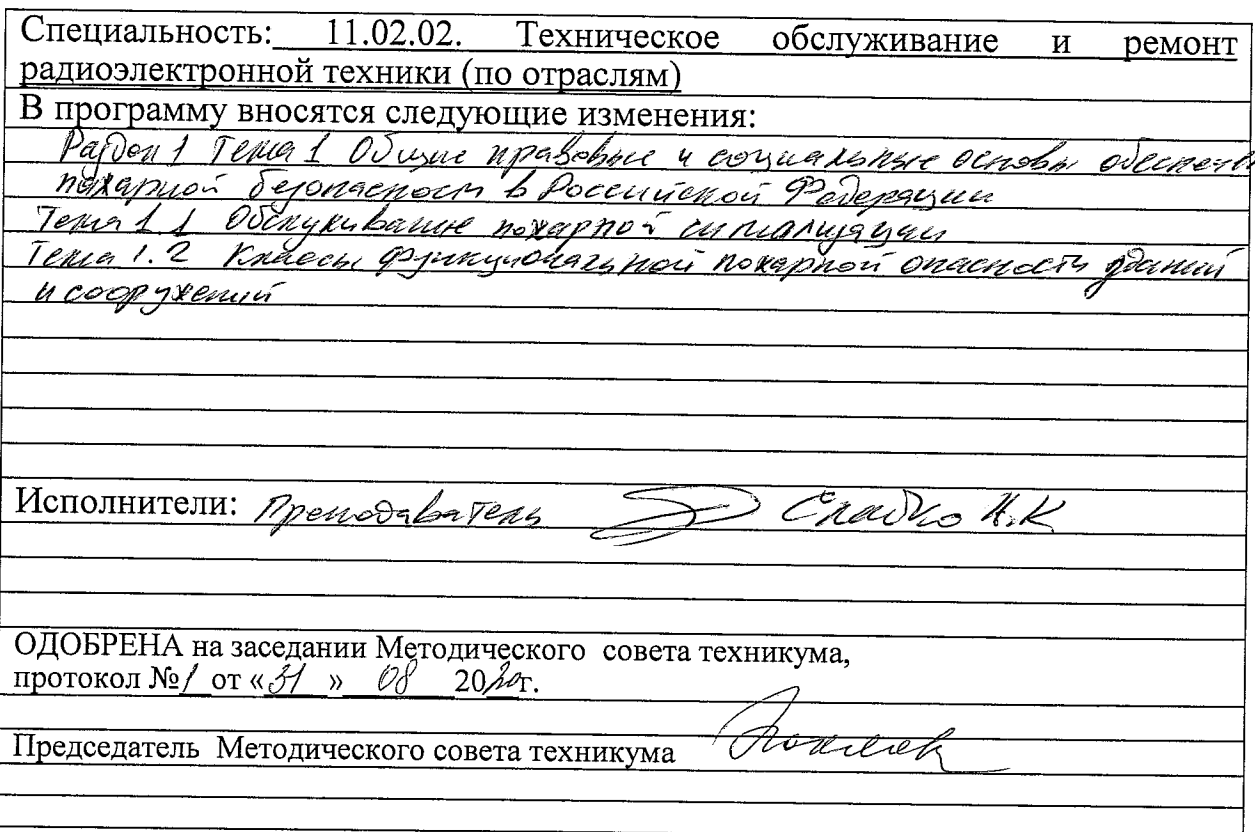 Специальность: 11.02.02. Техническое обслуживание и ремонт
радиоэлектронной техники (по отраслям)
В программу вносятся следующие изменения:
Раздел 1 Тема 1 Общие правовые и социальные основы обеспечен
пожарной безопасности в Российской Федерации
Тема 1.1 Обслуживание пожарной сигнализации
Тема 1.2 Классы функциональной пожарной опасность зданий
и сооружений
Исполнители: Преподаватель Н.К
ОДОБРЕНА на заседании Методического совета техникума,
протокол №1 от «31» 08 2020г.
Председатель Методического совета техникума